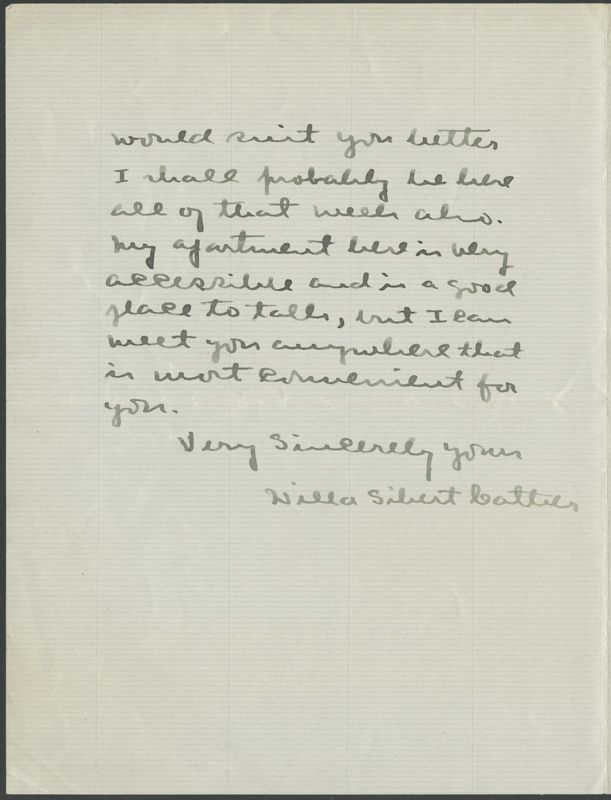 would suit you better
I shall probably be here
all of that week also.
My apartment here is very
accessible and is a good
place to talk, but I can
meet you anywhere that
is most convenient for
you.
Very Sincerely yours
Willa Sibert Cather